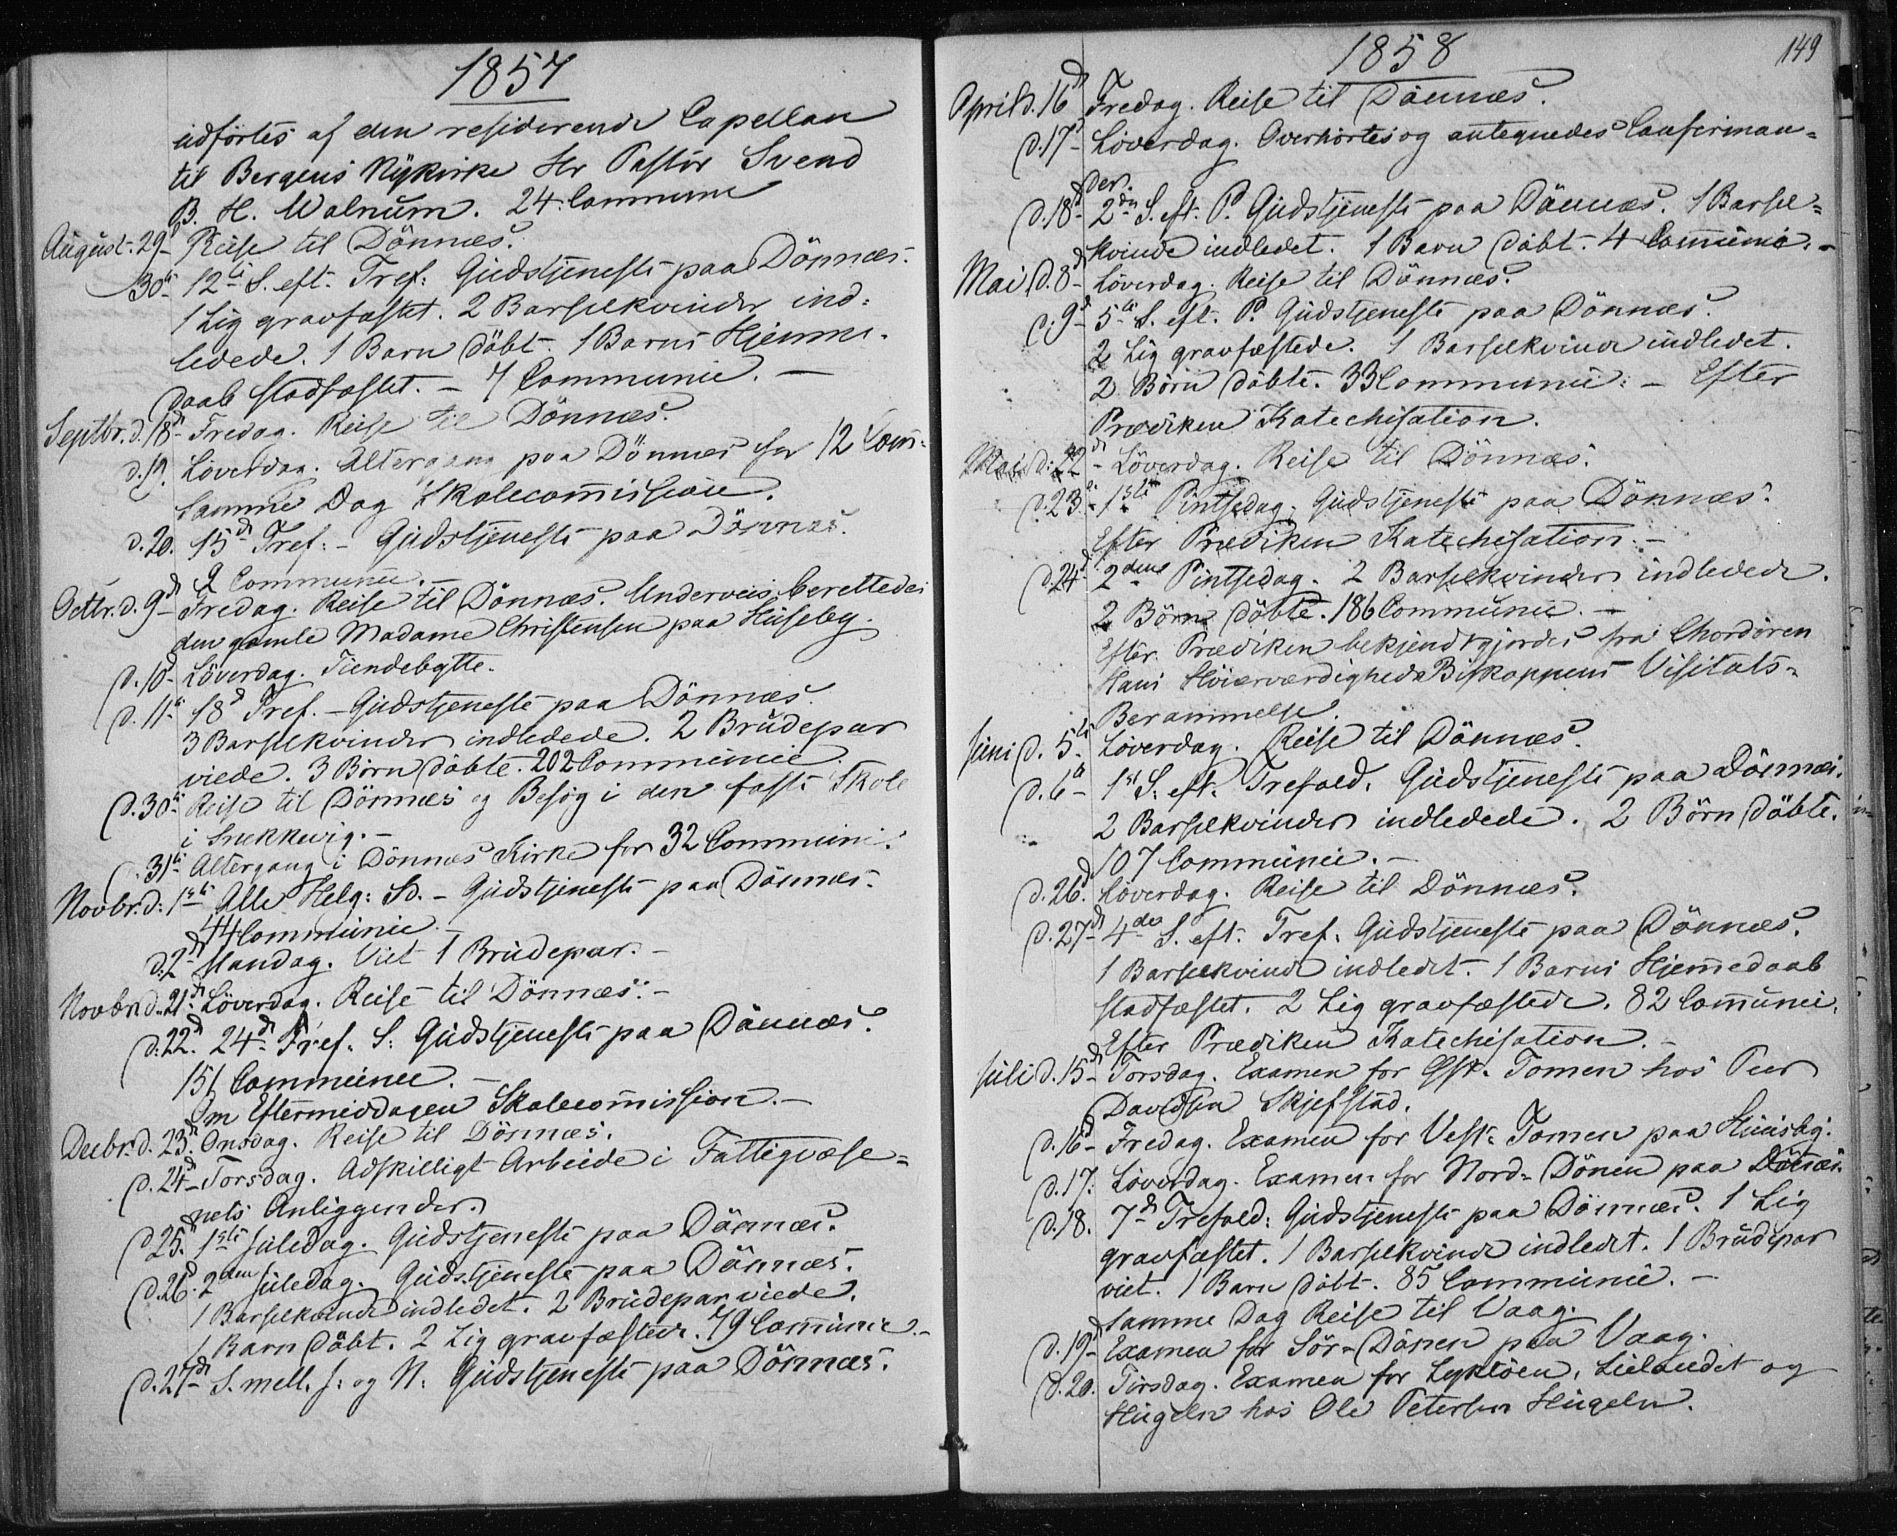 1857
udførtes af den residerende Capellan
til Bergens Nykirke Hr Pastor Svend
B. H. Walnum. 24 Commun
August. 29d Reise til Dönnæs.
30te 12te S. eft. Tref: Gudstjeneste paa Dönnæs.
1 Lig gravfæstet. 2 Barselkvinder ind=
ledede. 1 Barn döbt. 1 Barns Hjemme-
daab stadfæstet. – 7 Communic. –
Septbr. d. 18d Fredag. Reise til Dönnæs.
d. 19. Löverdag. Altergang paa Dönnæs for 12 Com=
Samme Dag Skolecommission.
d. 20. 15d Tref: – Gudstjeneste paa Dönnæs.
2 Communic. –
Octbr. d. 9d Fredag. Reise til Dönnæs. Underveis berettedes
den gamle Madame Christensen paa Huseby.
d. 10d Löverdag. Tiendebytte.
d. 11te 18d Tref. – Gudstjeneste paa Dönnæs.
3 Barselkvinder indledede. 2 Brudepar
viede. 3 Börn döbte. 202 Communic.
d. 30te Reise til Dönnæs og Besög i den faste Skole
i Snekkevig. –
d. 31te Altergang i Dönnæs Kirke for 32 Communi:
Novbr. d: 1ste Alle Helg: Sd. – Gudstjeneste paa Dönnæs.
44 Communic. –
d. 2d Mandag. Viet 1 Brudepar. –
Novbr. d. 21d Löverdag. Reise til Dönnæs. –
d. 22d 24d Tref. S: Gudstjeneste paa Dönnæs.
151 Communic. –
Om Eftermiddagen Skolecommission. –
Decbr. d. 23d Onsdag. Reise til Dönnæs.
d. 24d Torsdag. Adskilligt Arbeide i Fattigvæse=
nets Anliggender.
d. 25d 1ste Juledag. Gudstjeneste paa Dönnæs.
d. 26d 2den Juledag. Gudstjeneste paa Dönnæs.
1 Barselkvinde indledet. 2 Brudepar viede.
1 Barn döbt. 2 Lig gravfæstede. 79 Communic. –
d. 27d S. mell. J: og N: Gudstjeneste paa Dönnæs.
1858
149
April d. 16d Fredag. Reise til Dönnæs.
d. 17d Löverdag. Overhörtes og antegnedes Confirman=
der.
d. 18d 2den S. eft. P. Gudstjeneste paa Dönnæs. 1 Barsel=
kvinde indledet. 1 Barn döbt. 4 Communic. –
Mai d. 8d Löverdag. Reise til Dönnæs.
d: 9d 5te S. eft. P. Gudstjeneste paa Dönnæs.
2 Lig gravfæstede. 1 Barselkvinde indledet.
2 Börn döbte. 33 Communic: – Efter
Prædiken Katechisation.
Mai d: 22d Löverdag. Reise til Dönnæs.
d. 23d 1ste Pintsedag. Gudstjeneste paa Dönnæs.
Efter Prædiken Katechisation. –
d. 24d 2den Pintsedag. 2 Barselkvinder indledede.
2 Börn döbte. 186 Communic. –
Efter Prædiken bekjendtgjordes fra Chordören
Hans Höiærværdigheds Biskoppens Visitats=
Berammelse.
Juni d. 5te Löverdag. Reise til Dönnæs.
d. 6te 1ste S. eft. Trefold. Gudstjeneste paa Dönnæs.
2 Barselkvinder indledede. 2 Börn döbte.
107 Communic. –
d. 26d Löverdag. Reise til Dönnæs.
d. 27d 4de S. eft. Tref. Gudstjeneste paa Dönnæs.
1 Barselkvinde indledet. 1 Barns Hjemmedaab
stadfæstet. 2 Lig gravfæstede. 82 Communic.
Efter Prædiken Katechisation. –
Juli d. 15d Torsdag. Examen for Øst. Tomen hos Peer
Davidsen Skjefstad.
d. 16d Fredag. Examen for Vest. Tomen paa Huusby.
d. 17. Löverdag. Examen for Nord-Dönen paa Dönnæs.
d. 18. 7d Trefold: Gudstjeneste paa Dönnæs. 1 Lig
gravfæstet. 1 Barselkvinde indledet. 1 Brudepar
viet. 1 Barn döbt. 85 Communic. –
Samme Dag Reise til Vaag.
d. 19d Examen for Sör-Dönen paa Vaag.
d. 20. Tirsdag. Examen for og
Hugeln hos Ole Petersen Hugeln.